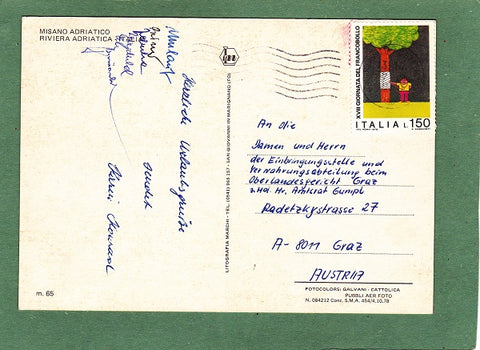 MISANO ADRIATICO
RIVIERA ADRIATICA
Herzliche Urlaubsgrüße
sendet
XVIII GIORNATA DEL FRANCOBOLLO
ITALIA L.150
An die
Damen und Herrn
der Einbringungsstelle und
Verwahrungsabteilung beim
Oberlandesgericht Graz
z.Hd. Hr. Amtsrat Gumpl
Radetzkystrasse 27
A-8011 Graz
AUSTRIA
LITOGRAFIA MARCHI - TEL. (0541) 965 257 - SAN GIOVANNI IN MARIGNANO (FO)
m. 65
FOTOCOLORS: GALVANI - CATTOLICA
PUBBLI AER FOTO
N. 084212 Conz. S.M.A. 454/4.10.78